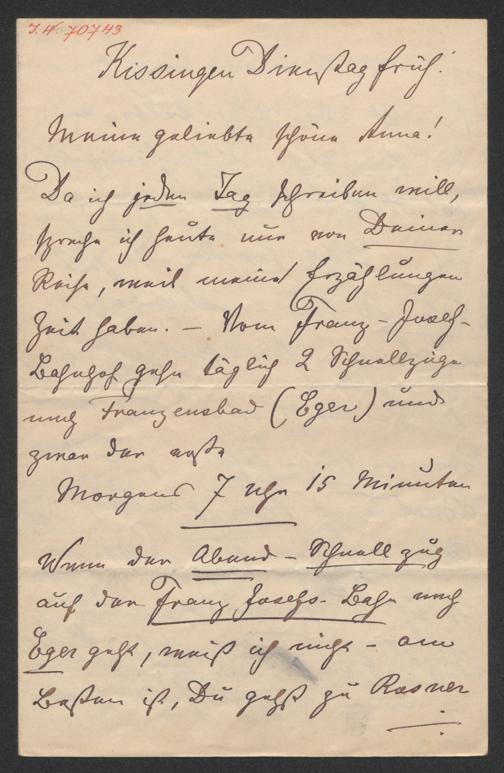 I.N. 70743
Kissingen Dienstag früh!
Meine geliebte schöne Anna!
Da ich jeden Tag schreiben will,
spreche ich heute nur von Deiner
Reise, weil meine Erzählungen
Zeit haben. – Vom Franz-Josef-
Bahnhof gehn täglich 2 Schnellzüge
nach Franzensbad (Eger) und
zwar der erste
Morgens 7 Uhr 15 Minuten
Wenn der Abend-Schnellzug
auf der Franz Josefs-Bahn nach
Eger geht, weiß ich nicht – am
Besten ist, Du gehst zu Rosner